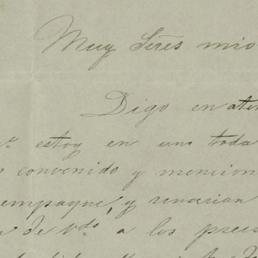 Muy Sres mio
Digo en aten
estoy en un todo
convenido y mencion
empaque, y
de Vds a los preci